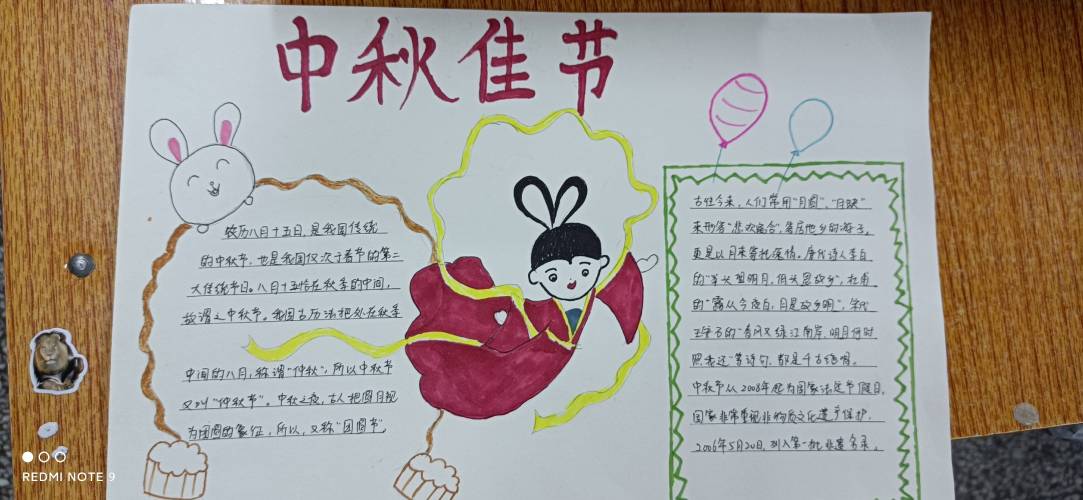 中秋佳节
农历八月十五日,是我国传统
的中秋节,也是我国仅次于春节的第二
大传统节日。八月十五恰在秋季的中间,
故谓之中秋节。我国古历法把处在秋季
中间的八月,称谓"仲秋",所以中秋节
又叫"仲秋节"。中秋之夜,古人把圆月视
为团圆的象征,所以,又称"团圆节"。
古往今来,人们常用"月圆"、"月缺"
来形容"悲欢离合",客居他乡的游子,
更是以月来寄托深情。唐代诗人李白
的"举头望明月,低头思故乡",杜甫
的"露从今夜白,月是故乡明",宋代
王安石的"春风又绿江南岸,明月何时
照我还"等诗句,都是千古绝唱。
中秋节从2008年起为国家法定节假日,
国家非常重视非物质文化遗产保护,
2006年5月20日,列入第一批非遗名录。
REDMI NOTE 9